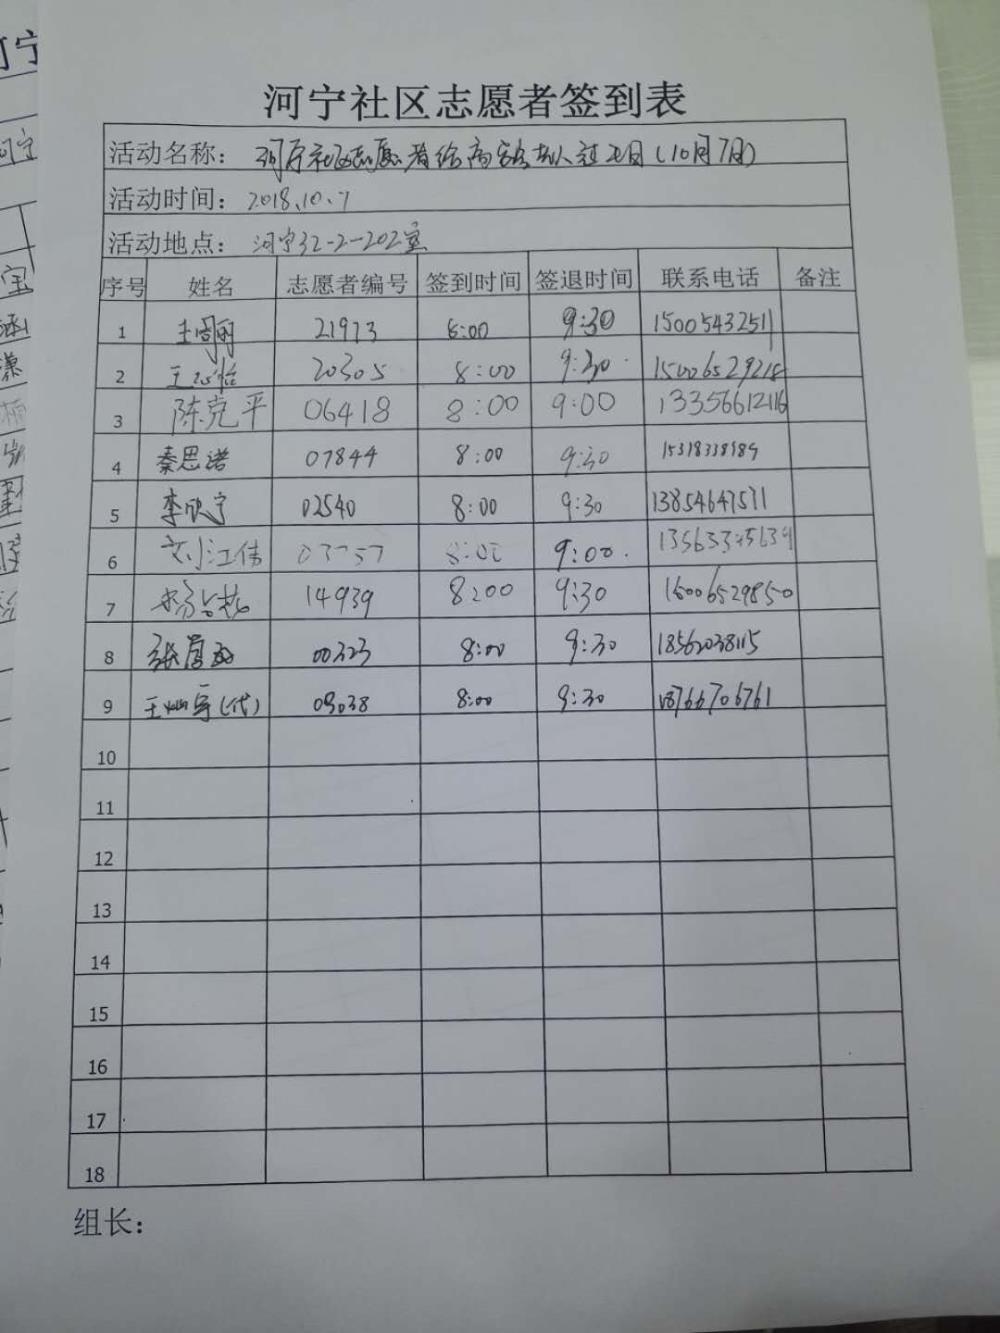 河宁社区志愿者签到表
活动名称: 河宁社区志愿者给高龄老人过生日(10月7日)
活动时间: 2018.10.7
活动地点: 河宁32-2-202室
序号 姓名 志愿者编号 签到时间 签退时间 联系电话 备注
1 王周丽 21973 8:00 9:30 15005432511
2 王心怡 20305 8:00 9:30 15006529218
3 陈克平 06418 8:00 9:00 13356612116
4 秦思诺 07844 8:00 9:30 15318338989
5 李欣宁 02540 8:00 9:30 13854647571
6 刘江伟 8:00 9:00
7 14939 8:00 9:30 15006529850
8 00323 8:00 9:30 18562038115
9 王灿宇(代) 09038 8:00 9:30 18766706761
10
11
12
13
14
15
16
17
18
组长: